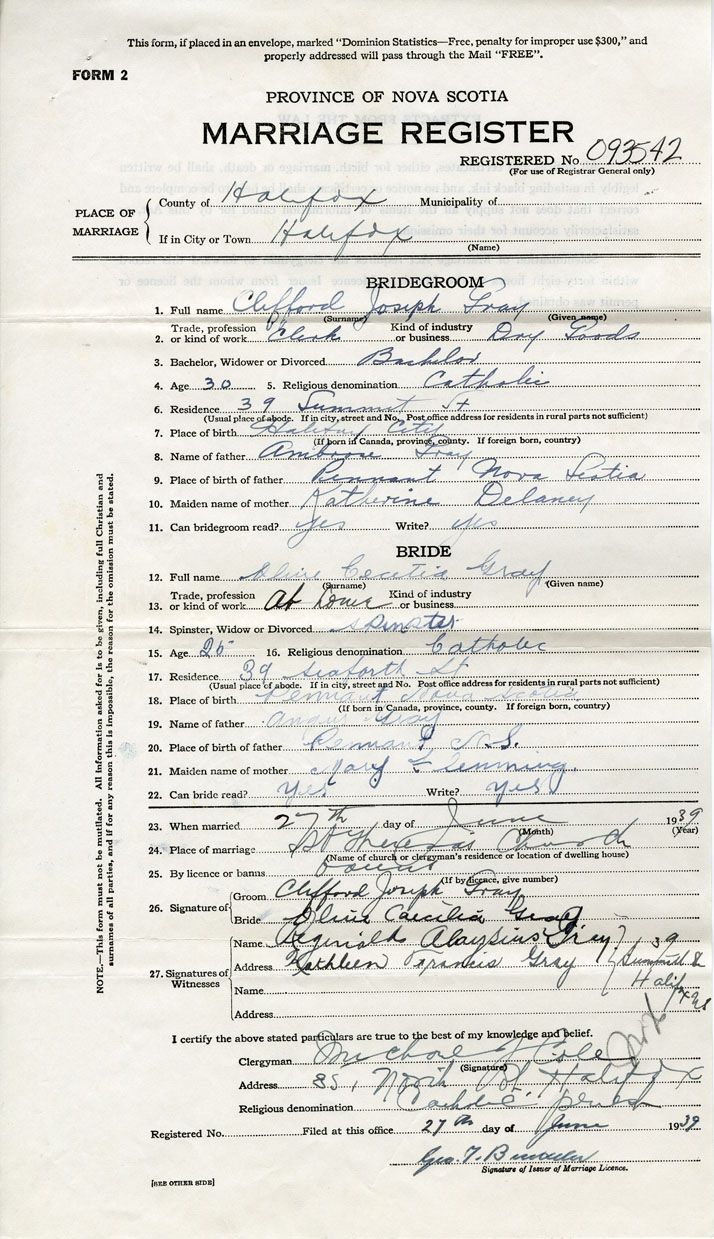 This form, if placed in an envelope, marked "Dominion Statistics—Free, penalty for improper use $300," and
properly addressed will pass through the Mail "FREE".
FORM 2
PROVINCE OF NOVA SCOTIA
MARRIAGE REGISTER
REGISTERED No. 093542
(For use of Registrar General only)
PLACE OF MARRIAGE
County of Halifax Municipality of
If in City or Town Halifax
(Name)
BRIDEGROOM
1. Full name Clifford Joseph Gray
(Surname) (Given name)
2. Trade, profession or kind of work Clerk Kind of industry or business Dry Goods
3. Bachelor, Widower or Divorced Bachelor
4. Age 30 5. Religious denomination Catholic
6. Residence 39 Summit St
(Usual place of abode. If in city, street and No. Post office address for residents in rural parts not sufficient)
7. Place of birth Halifax City
(If born in Canada, province, county. If foreign born, country)
8. Name of father Ambrose Gray
9. Place of birth of father Pennant Nova Scotia
10. Maiden name of mother Katherine Delaney
11. Can bridegroom read? yes Write? yes
BRIDE
12. Full name Olive Cecilia Gray
(Surname) (Given name)
13. Trade, profession or kind of work At home Kind of industry or business
14. Spinster, Widow or Divorced spinster
15. Age 25 16. Religious denomination Catholic
17. Residence 39 Seaforth St
(Usual place of abode. If in city, street and No. Post office address for residents in rural parts not sufficient)
18. Place of birth Pennant Nova Scotia
(If born in Canada, province, county. If foreign born, country)
19. Name of father Angus Gray
20. Place of birth of father Pennant, N.S.
21. Maiden name of mother Mary Flemming
22. Can bride read? Yes Write? yes
23. When married 27th day of June 1939
(Month) (Year)
24. Place of marriage St Theresa's Church
(Name of church or clergyman's residence or location of dwelling house)
25. By licence or banns
(If by licence, give number)
26. Signature of Groom Clifford Joseph Gray
Bride Olive Caecilia Gray
27. Signatures of Witnesses
Name Reginald Aloysius Grey 39
Address Kathleen Francis Gray Summit St
Name Halifax
Address
I certify the above stated particulars are true to the best of my knowledge and belief.
Clergyman Michael J Cole
(Signature)
Address 85, North St Halifax
Religious denomination Catholic priest
Registered No. Filed at this office 27th day of June 1939
Geo. T.
Signature of Issuer of Marriage Licence.
[SEE OTHER SIDE]
NOTE.—This form must not be mutilated. All information asked for is to be given, including full Christian and
surnames of all parties, and if for any reason this is impossible, the reason for the omission must be stated.